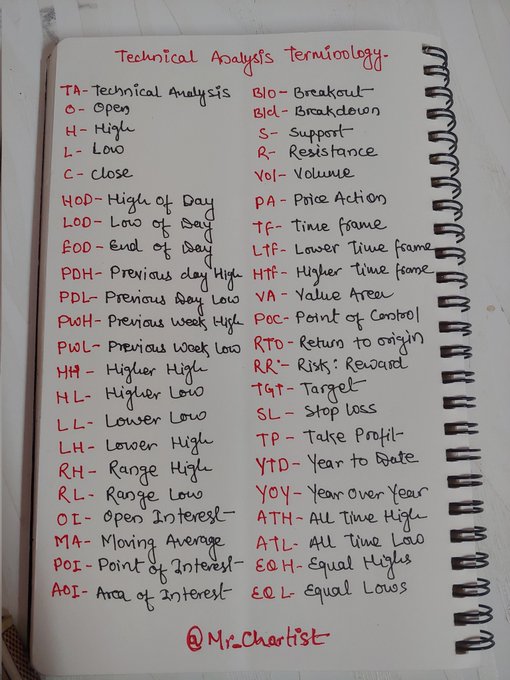 Technical Analysis Terminology.
TA- Technical Analysis
O- Open
H- High
L- Low
C- close
HOD- High of Day
LOD- Low of Day
EOD- End of Day
PDH- Previous day High
PDL- Previous Day Low
PWH- Previous week High
PWL- Previous week low
HH- Higher High
HL- Higher Low
LL- Lower Low
LH- Lower High
RH- Range High
RL- Range Low
OI- Open Interest
MA- Moving Average
POI- Point of Interest
AOI- Area of Interest
B/o- Breakout
B/d- Breakdown
S- Support
R- Resistance
Vol- Volume
PA- Price Action
TF- Time frame
LTF- Lower Time frame
HTF- Higher Time frame
VA- Value Area
POC- Point of Control
RTO- Return to origin
RR:- Risk: Reward
TGT- Target
SL- Stop loss
TP- Take Profit
YTD- Year to Date
YOY- Year Over Year
ATH- All Time High
ATL- All Time Low
EQH- Equal Highs
EQL- Equal Lows
@Mr_Chartist